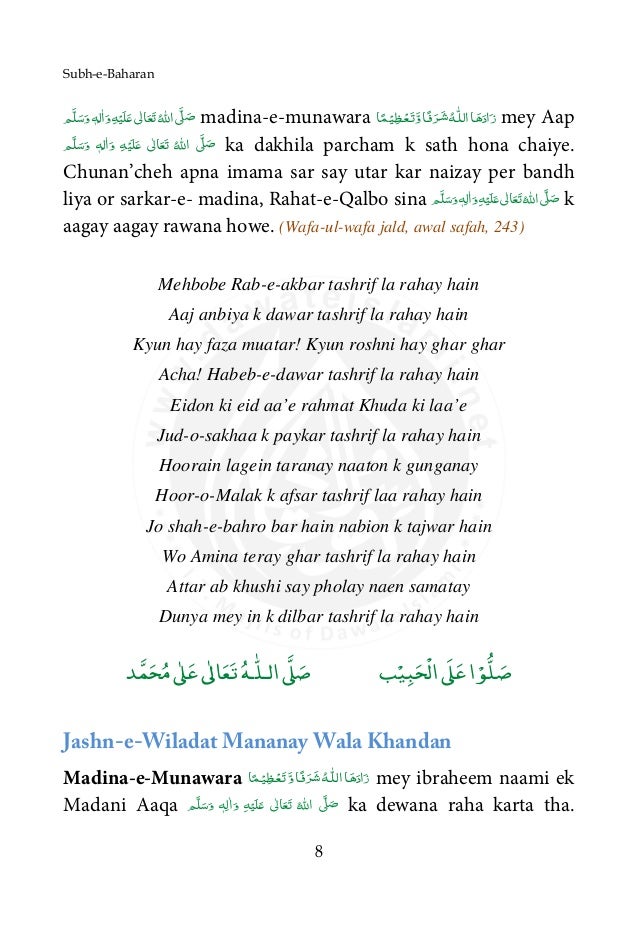 Subh-e-Baharan
صَلَّى اللهُ تَعَالٰى عَلَيْهِ وَاٰلِهٖ وَسَلَّم madina-e-munawara زَادَهَا اللّٰهُ شَرَفًا وَّتَعْظِيْمًا mey Aap
صَلَّى اللهُ تَعَالٰى عَلَيْهِ وَاٰلِهٖ وَسَلَّم ka dakhila parcham k sath hona chaiye.
Chunan’cheh apna imama sar say utar kar naizay per bandh
liya or sarkar-e- madina, Rahat-e-Qalbo sina صَلَّى اللهُ تَعَالٰى عَلَيْهِ وَاٰلِهٖ وَسَلَّم k
aagay aagay rawana howe. (Wafa-ul-wafa jald, awal safah, 243)
Mehbobe Rab-e-akbar tashrif la rahay hain
Aaj anbiya k dawar tashrif la rahay hain
Kyun hay faza muatar! Kyun roshni hay ghar ghar
Acha! Habeb-e-dawar tashrif la rahay hain
Eidon ki eid aa’e rahmat Khuda ki laa’e
Jud-o-sakhaa k paykar tashrif la rahay hain
Hoorain lagein taranay naaton k gunganay
Hoor-o-Malak k afsar tashrif laa rahay hain
Jo shah-e-bahro bar hain nabion k tajwar hain
Wo Amina teray ghar tashrif la rahay hain
Attar ab khushi say pholay naen samatay
Dunya mey in k dilbar tashrif la rahay hain
صَلُّوْا عَلَى الْحَبِيْب صَلَّى اللّٰهُ تَعَالٰى عَلٰى مُحَمَّد
Jashn-e-Wiladat Mananay Wala Khandan
Madina-e-Munawara زَادَهَا اللّٰهُ شَرَفًا وَّتَعْظِيْمًا mey ibraheem naami ek
Madani Aaqa صَلَّى اللهُ تَعَالٰى عَلَيْهِ وَاٰلِهٖ وَسَلَّم ka dewana raha karta tha.
8
www.dawateislami.net